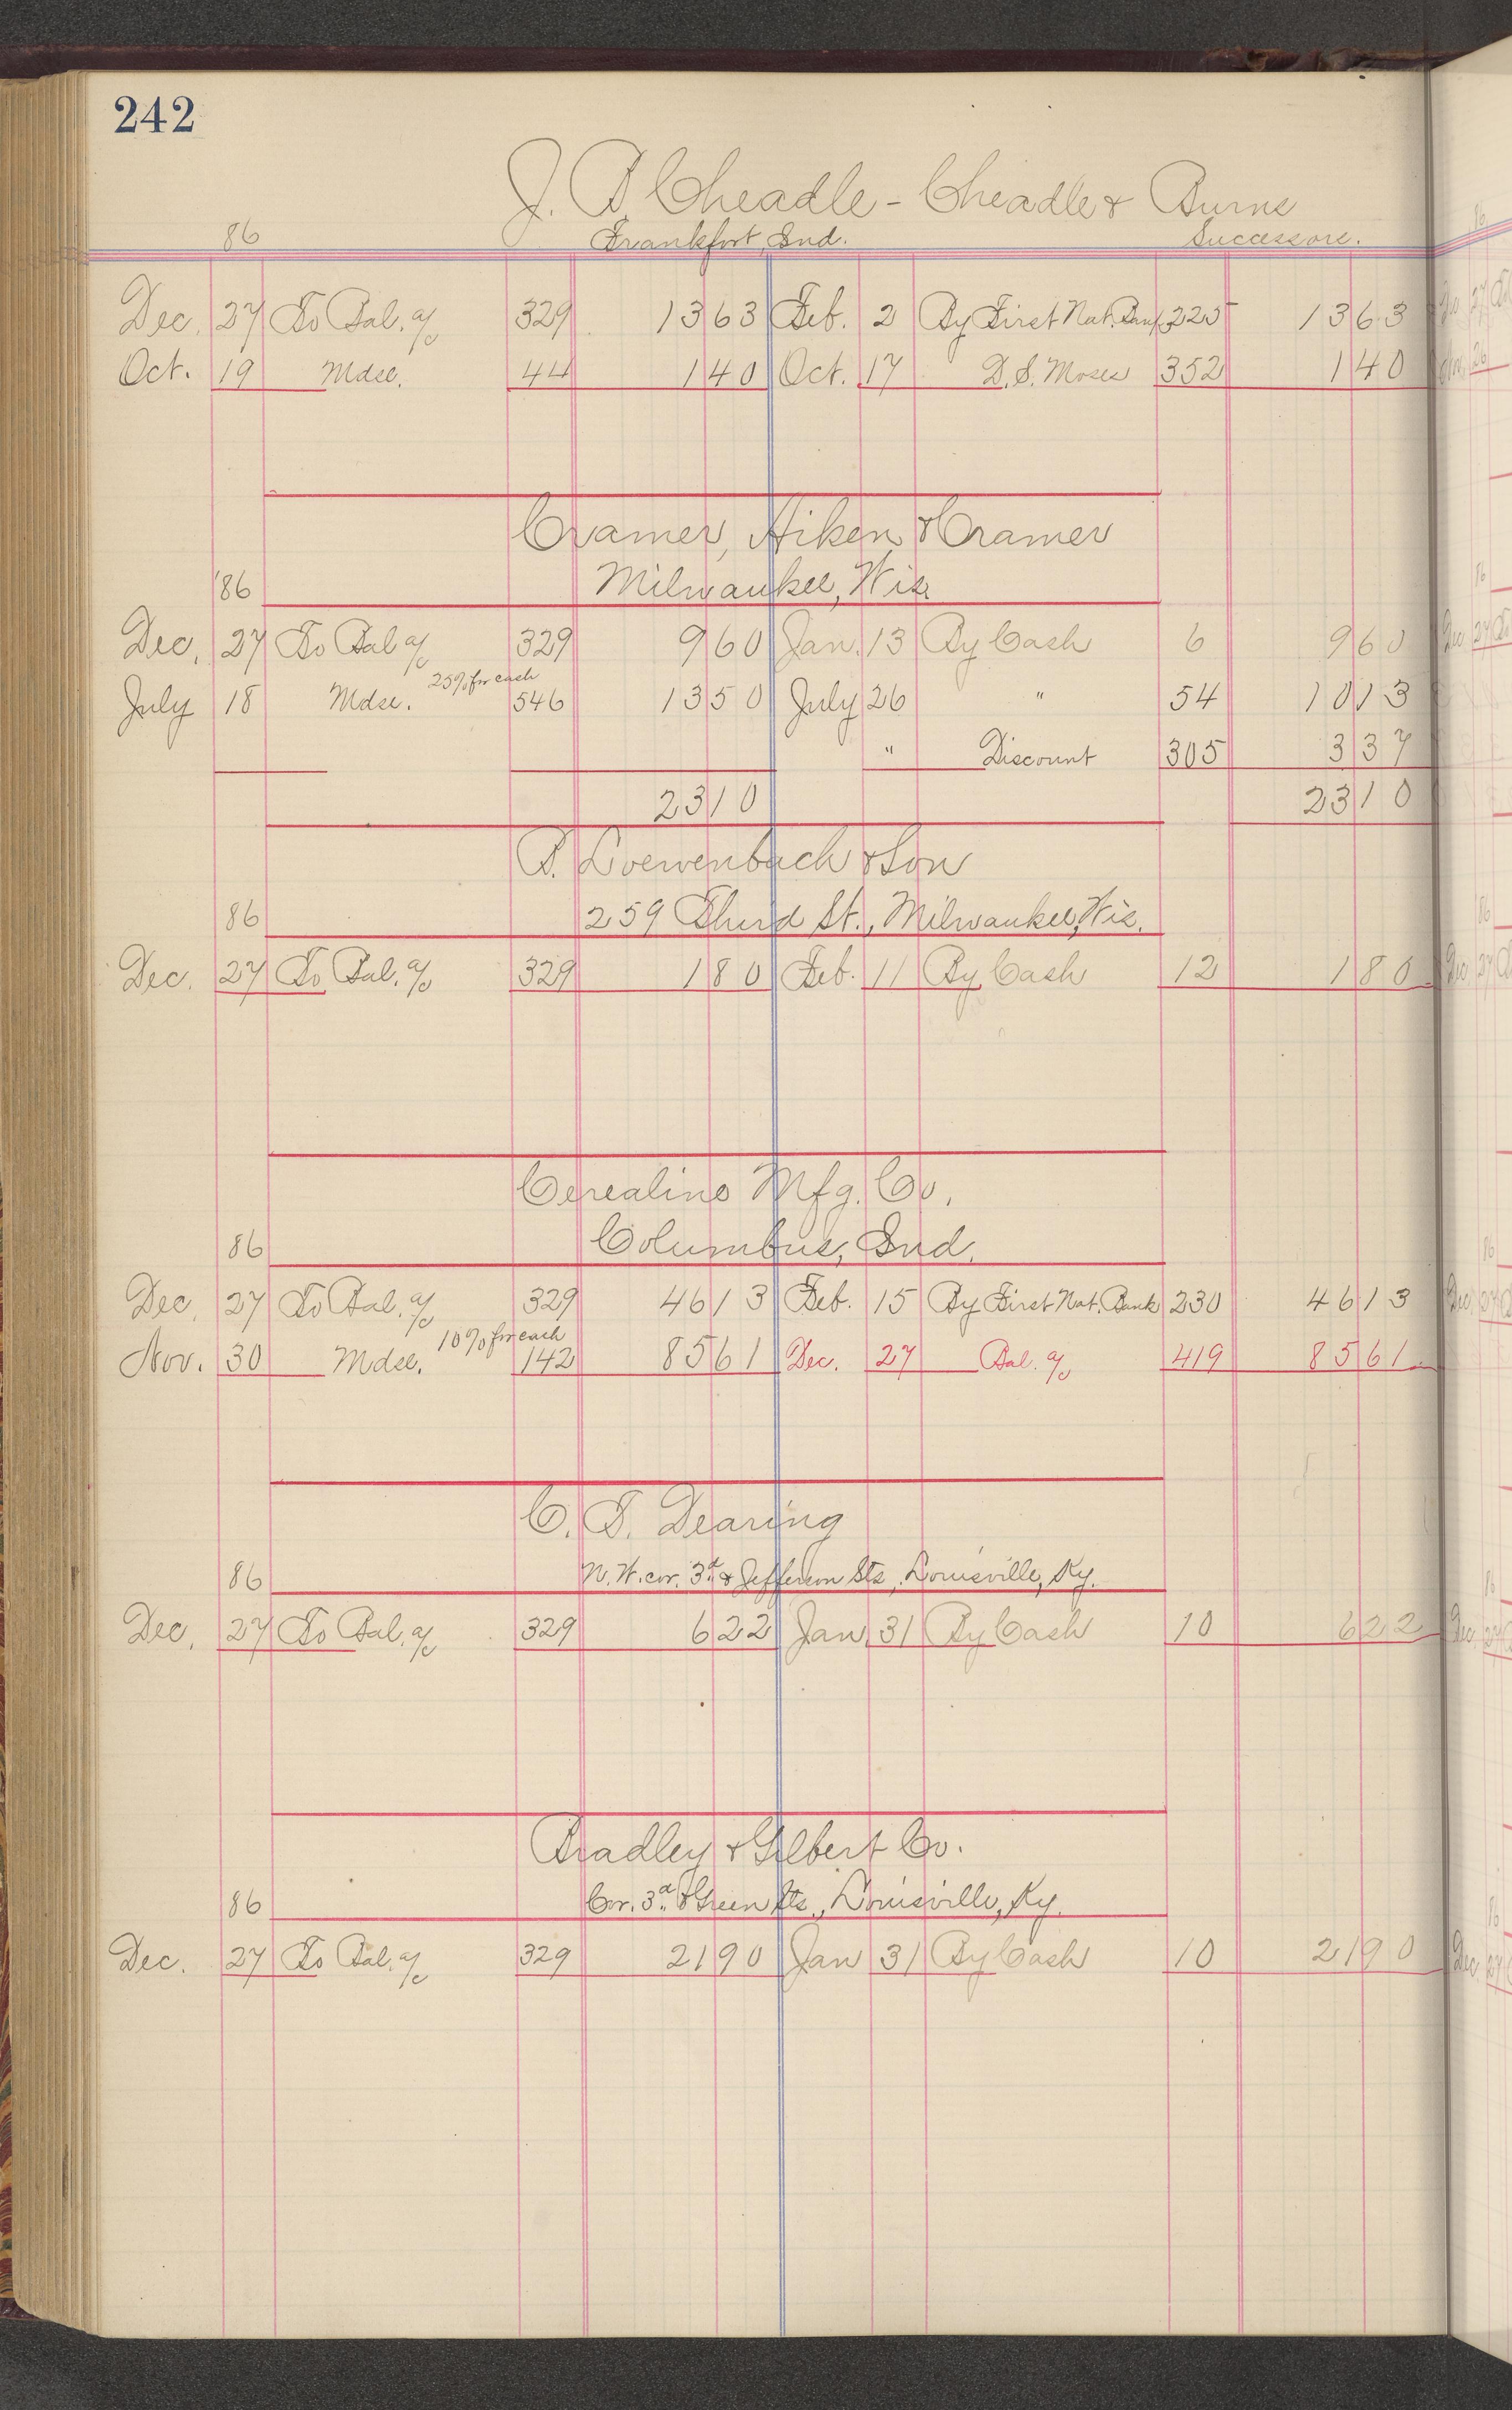 242
J. B. Cheadle - Cheadle & Burns
86 Frankfort, Ind. Successors.
Dec. 27 To Bal. a/c 329 1363 Feb. 2 By First Nat. Bank 225 1363
Oct. 19 Mdse. 44 140 Oct. 17 D. S. Moses 352 140
Cramer, Aiken & Cramer
'86 Milwaukee, Wis.
Dec. 27 To Bal a/c 329 960 Jan. 13 By Cash 6 960
25% for cash
July 18 Mdse. 546 1350 July 26 " 54 1013
" Discount 305 337
2310 2310
B. Loewenbach & Son
86 259 Third St., Milwaukee, Wis.
Dec. 27 To Bal. a/c 329 180 Feb. 11 By Cash 12 180
Cerealine Mfg. Co.
86 Columbus, Ind.
Dec. 27 To Bal. a/c 329 4613 Feb. 15 By First Nat. Bank 230 4613
10% for cash
Nov. 30 Mdse. 142 8561 Dec. 27 Bal. a/c 419 8561
C. T. Dearing
86 N. W. cor. 3d. & Jefferson Sts., Louisville, Ky.
Dec. 27 To Bal. a/c 329 622 Jan 31 By Cash 10 622
Bradley & Gilbert Co.
86 Cor. 3d. & Green Sts., Louisville, Ky.
Dec. 27 To Bal. a/c 329 2190 Jan 31 By Cash 10 2190